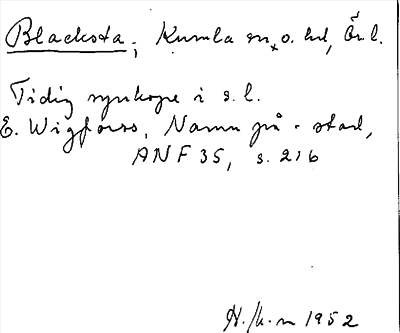 Blacksta, Kumla sn o. hd, Ör l.
Tidig synkope i s. l.
E. Wigforss, Namn på -stad,
ANF 35, s. 216
1952